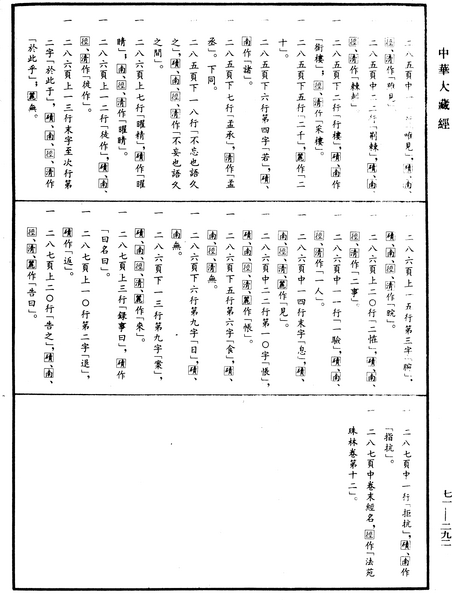 中華大藏經
一 二八五頁中一
唯見」，磧、南、
徑、清作「
一 二八五頁中二
荊棘」，磧、南、
徑、清作「棘
一 二八五頁下二行「行樓」，磧、南作
「街樓」；徑、清作「采樓」。
一 二八五頁下五行「二千」，麗作「二
十」。
一 二八五頁下六行第四字「若」，磧、
南作「諸」。
一 二八五頁下七行「孟承」，清作「孟
丞」。下同。
一 二八五頁下一八行「不忘也語久
之」，磧、南、徑、清作「不妄也語久
之間」。
一 二八六頁上七行「曜精」，磧作「曜
睛」，南、徑、清作「耀睛」。
一 二八六頁上一二行「彼作」，磧、南、
徑、清作「彼作」。
一 二八六頁上一三行末字至次行第
二字「於此乎」，磧、南、徑、清作
「於此乎」；麗無。
一 二八六頁上一五行第三字「
磧、南、徑、清作「晥」。
一 二八六頁上二〇行「二惟」，磧、南、
徑、清作「二事」。
一 二八六頁中一一行「一驗」，磧、南、
徑、清作「一人」。
一 二八六頁中一四行末字「息」，磧、
南、徑、清、麗作「見」。
一 二八六頁中二二行第一〇字「悵」，
磧、南、徑、清、麗作「悵」。
一 二八六頁下五行第六字「食」，磧、
南、徑、清無。
一 二八六頁下六行第九字「日」，磧、
南無。
一 二八六頁下一三行第九字「案」，
磧、南、徑、清、麗作「來」。
一 二八七頁上三行「錄事曰」，磧作
「曰名曰」。
一 二八七頁上一〇行第二字「退」，
磧作「返」。
一 二八七頁上二〇行「告之」，磧、南、
徑、清、麗作「告曰」。
一 二八七頁中一一行「拒抗」，磧、南作
「指抗」。
一 二八七頁中卷末經名，徑作「法苑
珠林卷第十二」。
七一—二九二